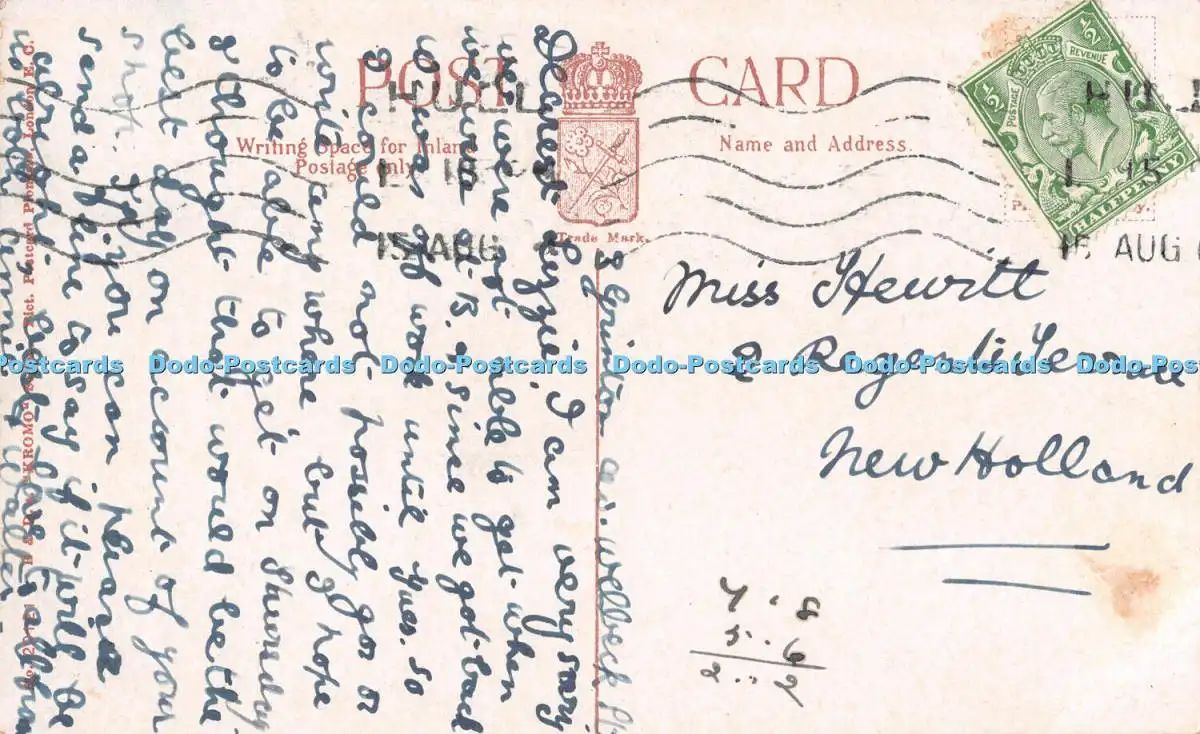 POST CARD
Writing Space for Inland
Postage only.
Name and Address.
Trade Mark.
HULL
15 AUG
HULL
15
15 AUG
POSTAGE REVENUE
½ ½
HALFPENNY
8 Grimston Welbeck
Dearest Lizzie. I am very sorry
we were not able to get when
we were at B. & since we got back
W was off work until Tues. so
I could not possibly go or
write any where but I hope
to be able to get on Thursday
I thought that would be the
best day on account of your
shop. If you can please
send a line to say if it will be
Miss Hewitt
2 Regent Terrace
New Holland
7 . 8
5 . 6
2 .. 2
Dodo-Postcards Dodo-Postcards Dodo-Postcards Dodo-Postcards Dodo-Postcards Dodo-Postcards Dodo-Postcards Dodo-Postcards
"KROMO" Pict. Postcard Pioneers, London E.C.